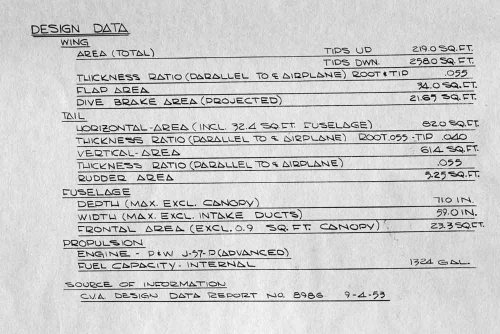 DESIGN DATA
WING
AREA (TOTAL) TIPS UP 219.0 SQ.FT.
TIPS DWN. 258.0 SQ.FT.
THICKNESS RATIO (PARALLEL TO ℄ AIRPLANE) ROOT & TIP .055
FLAP AREA 34.0 SQ.FT.
DIVE BRAKE AREA (PROJECTED) 21.65 SQ.FT.
TAIL
HORIZONTAL-AREA (INCL. 32.4 SQ.FT. FUSELAGE) 82.0 SQ.FT.
THICKNESS RATIO (PARALLEL TO ℄ AIRPLANE) ROOT.055-TIP .040
VERTICAL-AREA 61.4 SQ.FT.
THICKNESS RATIO (PARALLEL TO ℄ AIRPLANE) .055
RUDDER AREA 5.25 SQ.FT.
FUSELAGE
DEPTH (MAX. EXCL. CANOPY) 71.0 IN.
WIDTH (MAX. EXCL. INTAKE DUCTS) 59.0 IN.
FRONTAL AREA (EXCL. 0.9 SQ. FT. CANOPY) 23.3 SQ.FT.
PROPULSION
ENGINE - P&W J-57-P (ADVANCED)
FUEL CAPACITY - INTERNAL 1324 GAL.
SOURCE OF INFORMATION
C.V.A. DESIGN DATA REPORT NO. 8986 9-4-53